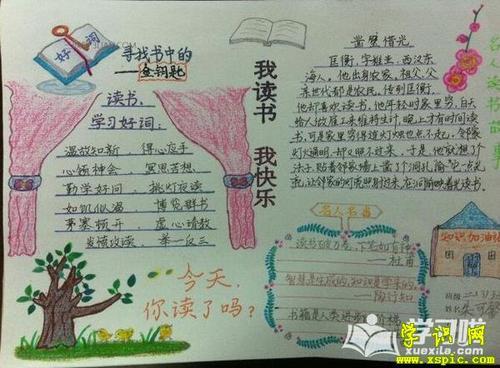 好词
寻找书中的
——金钥匙
读书，
学习好词：
温故知新 得心应手
心领神会 冥思苦想
勤学好问 挑灯夜读
如饥似渴 博览群书
茅塞顿开 虚心请教
发愤攻读 举一反三
今天，
你读了吗？
我读书
我快乐
凿壁借光
匡衡，字稚圭，西汉东
海人，他出身农家，祖父、父
亲世代都是农民，传到匡衡，
他却喜欢读书，他年轻时家里穷，白天
给人做雇工来维持生计，晚上才有时间读
书，可是家里穷得连灯烛也点不起，邻家
灯火通明，却又照不过来，于是他就想了个
法子，贴着邻家墙上凿了个洞孔，偷它一点光
名人名言
读书破万卷，下笔如有神
——杜甫
智慧是生成的，知识是学来的。
——陶行知
书籍是人类进步的阶梯
知识加油站
班级
姓名
学习啦
www.xuexila.com
学识网
www.xspic.com